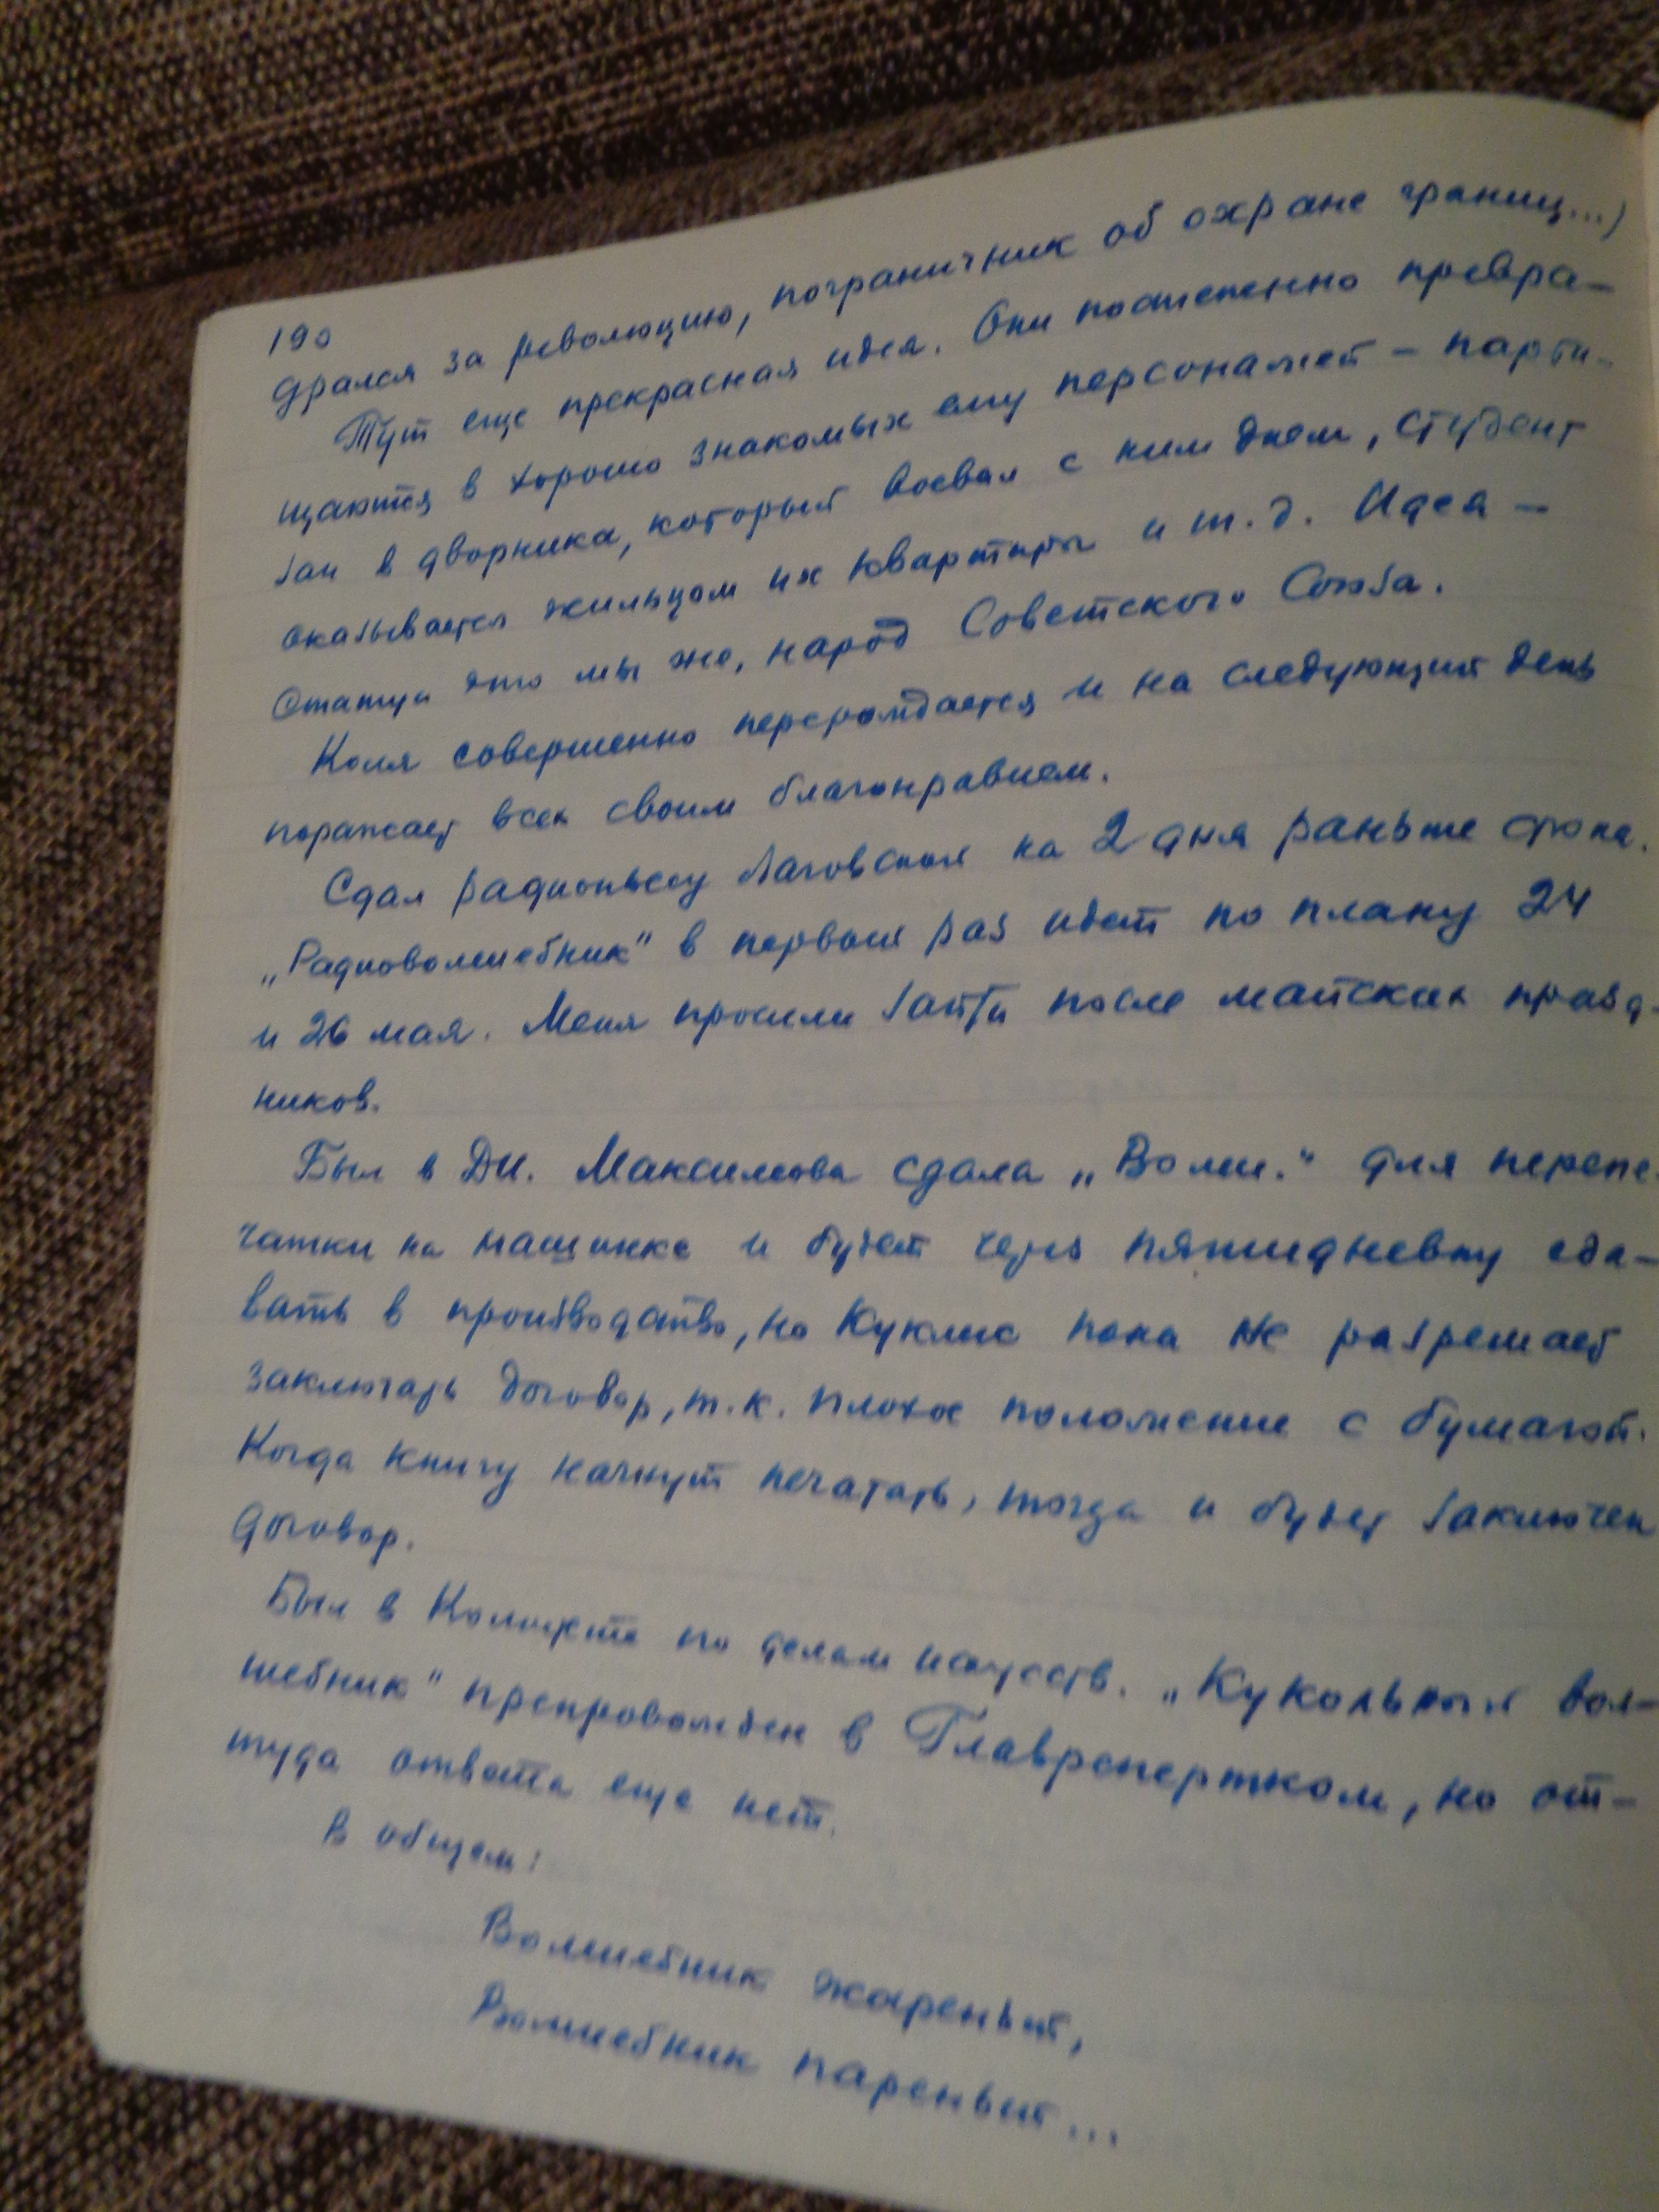 190
дрался за революцию, пограничник об охране границ...)
Тут еще прекрасная идея. Они постепенно превра-
щаются в хорошо знакомых ему персонажей – парти-
зан в дворника, который воевал с ним днем, студент
оказывается жильцом их квартиры и т.д. Идея –
статуи это мы же, народ Советского Союза.
Коля совершенно перерождается и на следующий день
поражает всех своим благонравием.
Сдал радиопьесу Лаговской на 2 дня раньше срока.
„Радиоволшебник" в первый раз идет по плану 24
и 26 мая. Меня просили зайти после майских празд-
ников.
Был в ДИ. Максимова сдала „Волш." для перепе-
чатки на машинке и будет через пятидневку сда-
вать в производство, но Куклис пока не разрешает
заключать договор, т.к. плохое положение с бумагой.
Когда книгу начнут печатать, тогда и будет заключен
договор.
Был в Комитете по делам искусств. „Кукольный вол-
шебник" препровожден в Главреперткоm, но от-
туда ответа еще нет.
В общем:
Волшебник жареный,
Волшебник пареный...